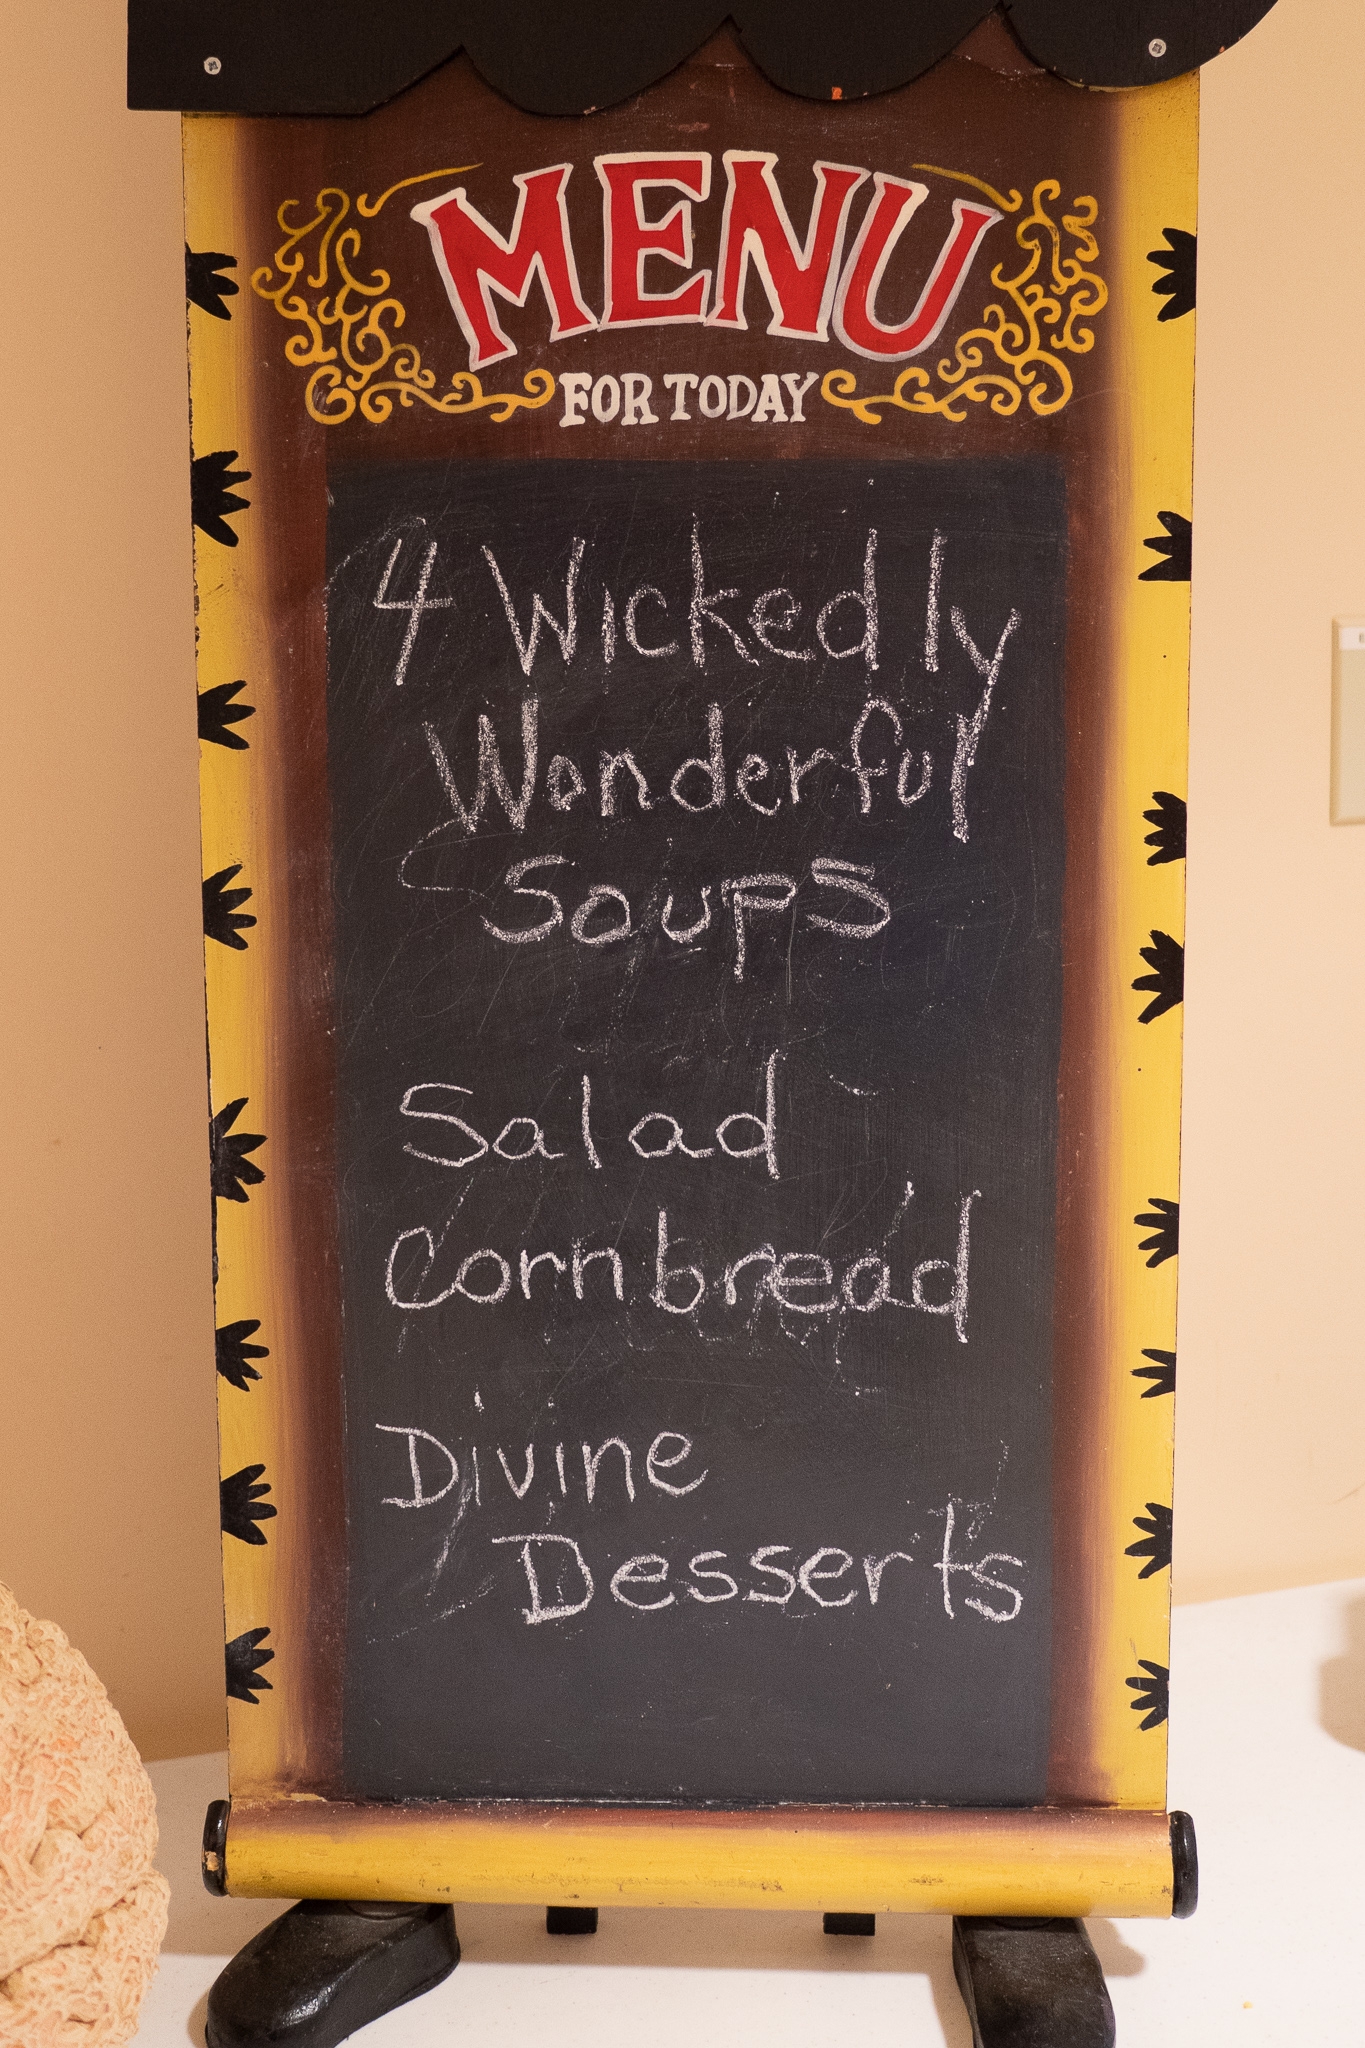 MENU
FOR TODAY
4 Wickedly
Wonderful
Soups
Salad
Cornbread
Divine
Desserts